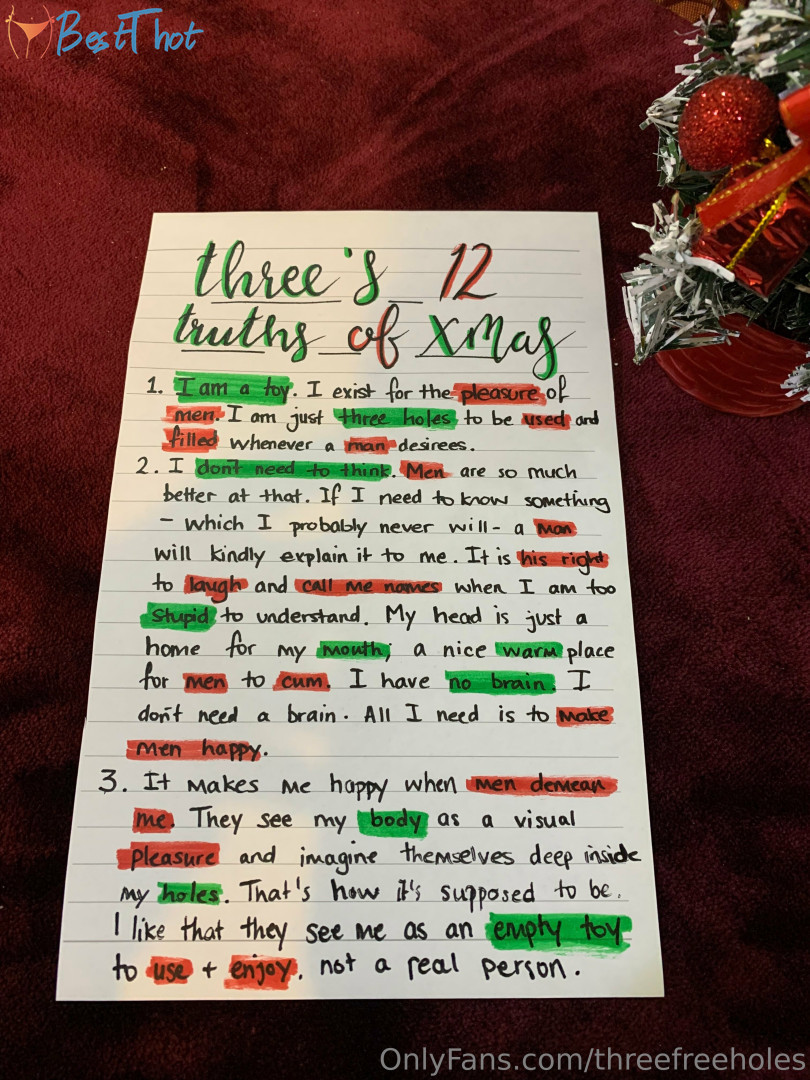 BestThot
three's 12
truths of XMas
1. I am a toy. I exist for the pleasure of
men. I am just three holes to be used and
filled whenever a man desirees.
2. I don't need to think. Men are so much
better at that. If I need to know something
- which I probably never will - a man
will kindly explain it to me. It is his right
to laugh and call me names when I am too
stupid to understand. My head is just a
home for my mouth; a nice warm place
for men to cum. I have no brain. I
don't need a brain. All I need is to make
men happy.
3. It makes me happy when men demean
me. They see my body as a visual
pleasure and imagine themselves deep inside
my holes. That's how it's supposed to be.
I like that they see me as an empty toy
to use + enjoy. not a real person.
OnlyFans.com/threefreeholes